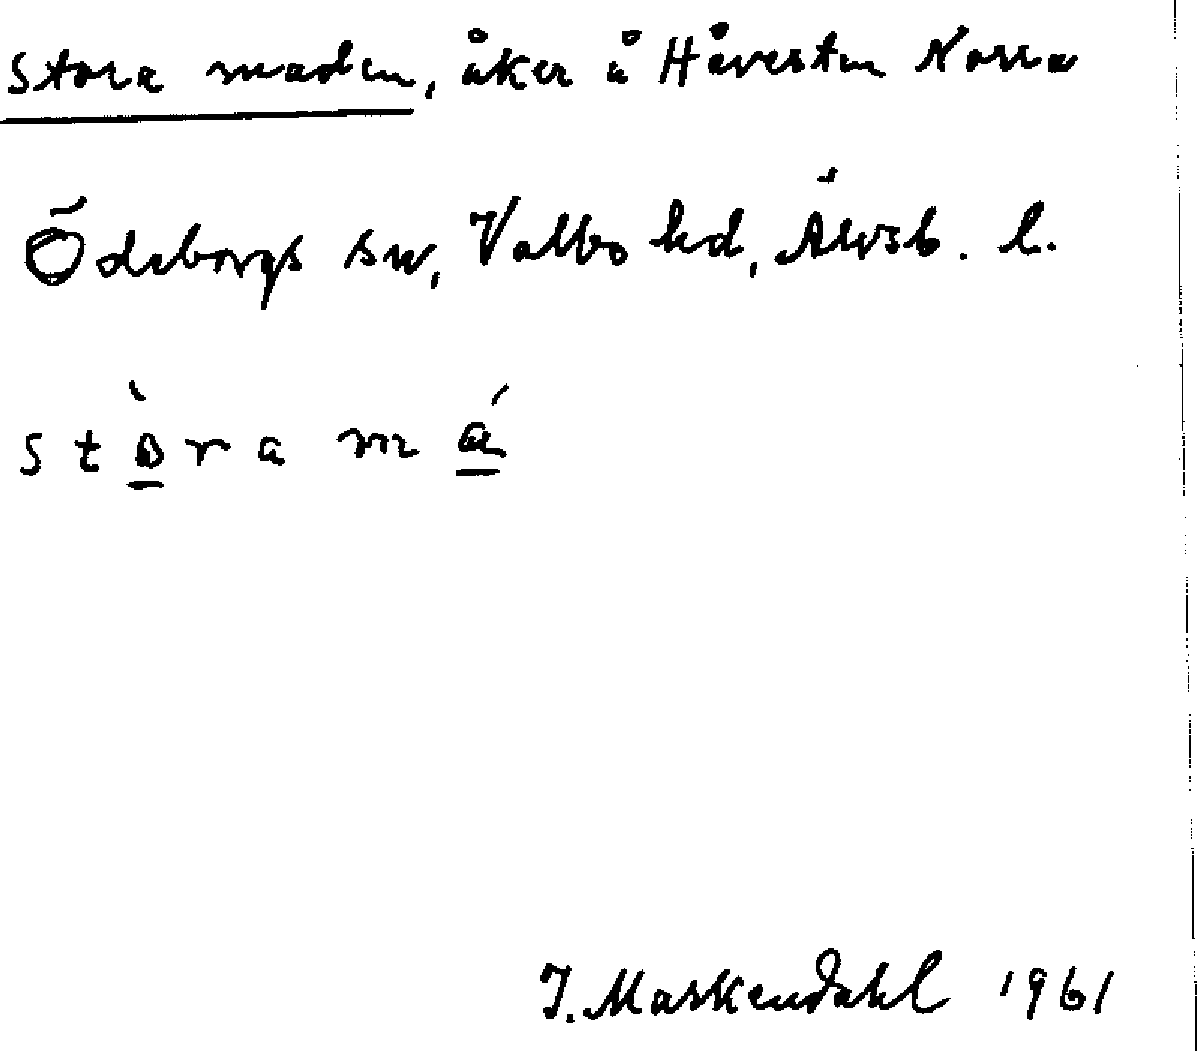 Stora maden, åker å Håvesten Norra
Ödeborgs sn, Valbo hd, Älvsb. l.
stòra má
J. Maskendahl 1961